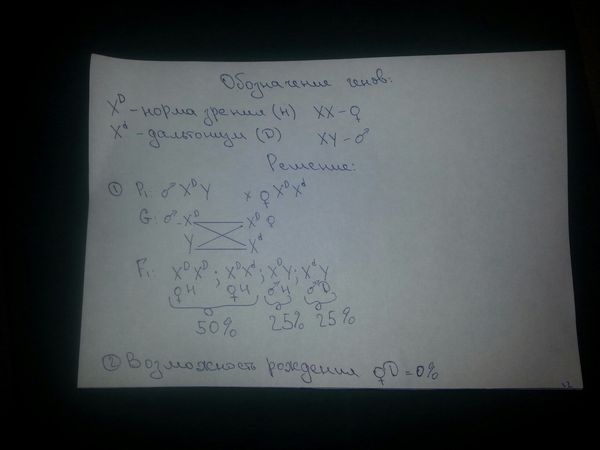 Обозначение генов:
X^D - норма зрения (Н)   XX - ♀
X^d - дальтонизм (D)   XY - ♂
Решение:
① P₁: ♂ X^D Y   x ♀ X^D X^d
G: ♂ X^D   X^D ♀
Y   X^d
F₁: X^D X^D; X^D X^d; X^D Y; X^d Y
♀Н   ♀Н   ♂Н   ♂D
50%   25%   25%
② Возможность рождения ♀D = 0%